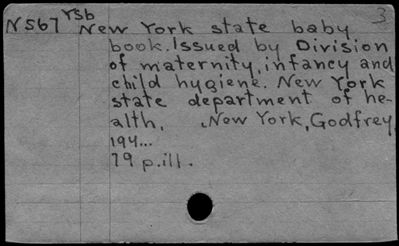 3
Ysb
N567 New York state baby
book. Issued by Division
of maternity, infancy and
child hygiene. New York
state department of he-
alth. New York, Godfrey,
194...
79 p. ill.